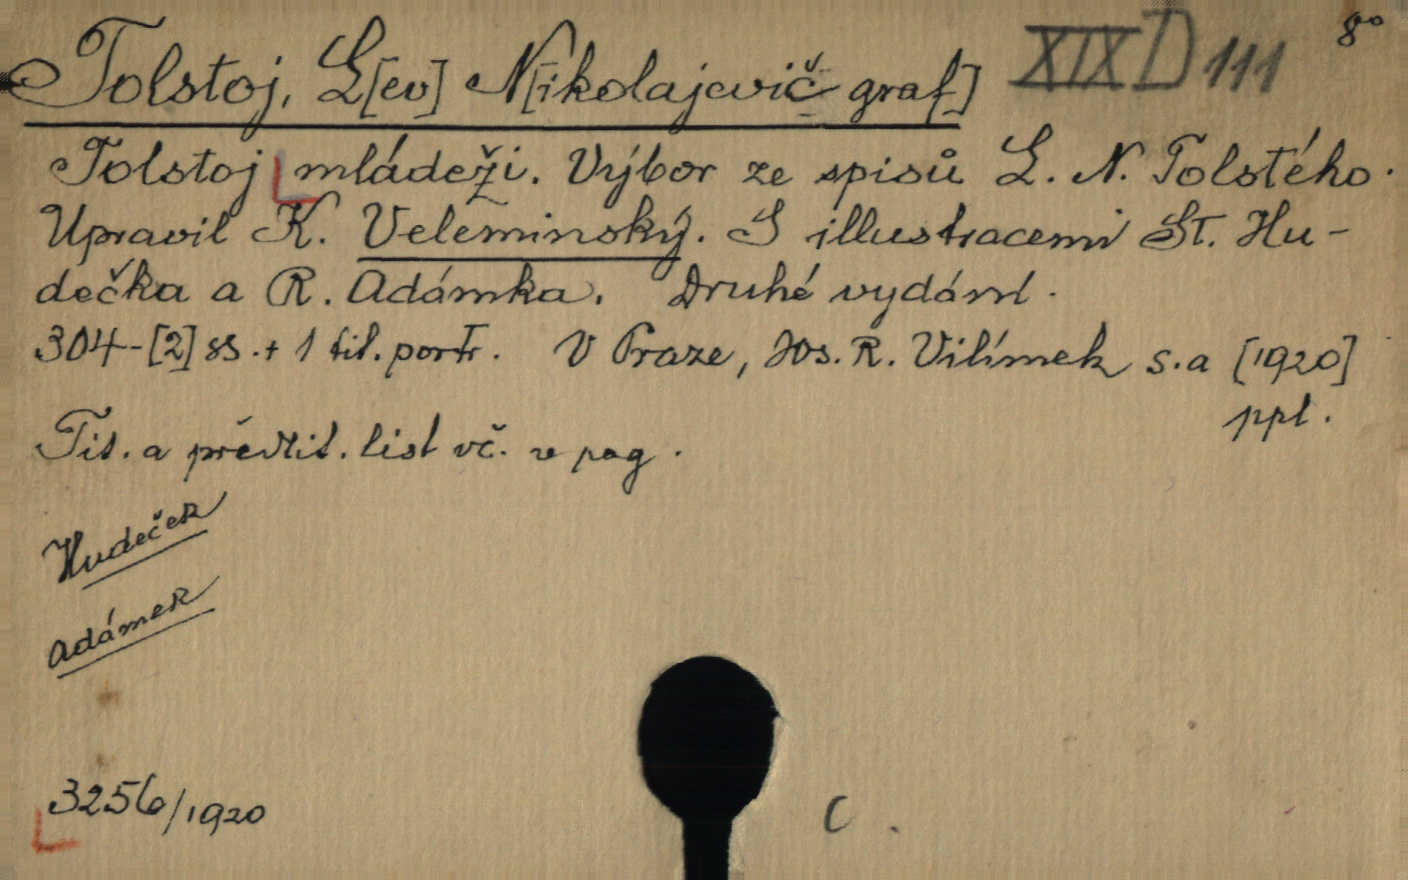 Tolstoj, L[ev] N[ikolajevič graf] XIX D 111 8°
Tolstoj mládeži. Výbor ze spisů L. N. Tolstého.
Upravil K. Veleminský. S illustracemi St. Hu-
dečka a R. Adámka. Druhé vydání.
304-[2] ss. + 1 tit. portr. V Praze, Jos. R. Vilímek s.a [1920]
ppl.
Tit. a předtit. list vč. v pag.
Hudeček
Adámek
3256/1920
C.